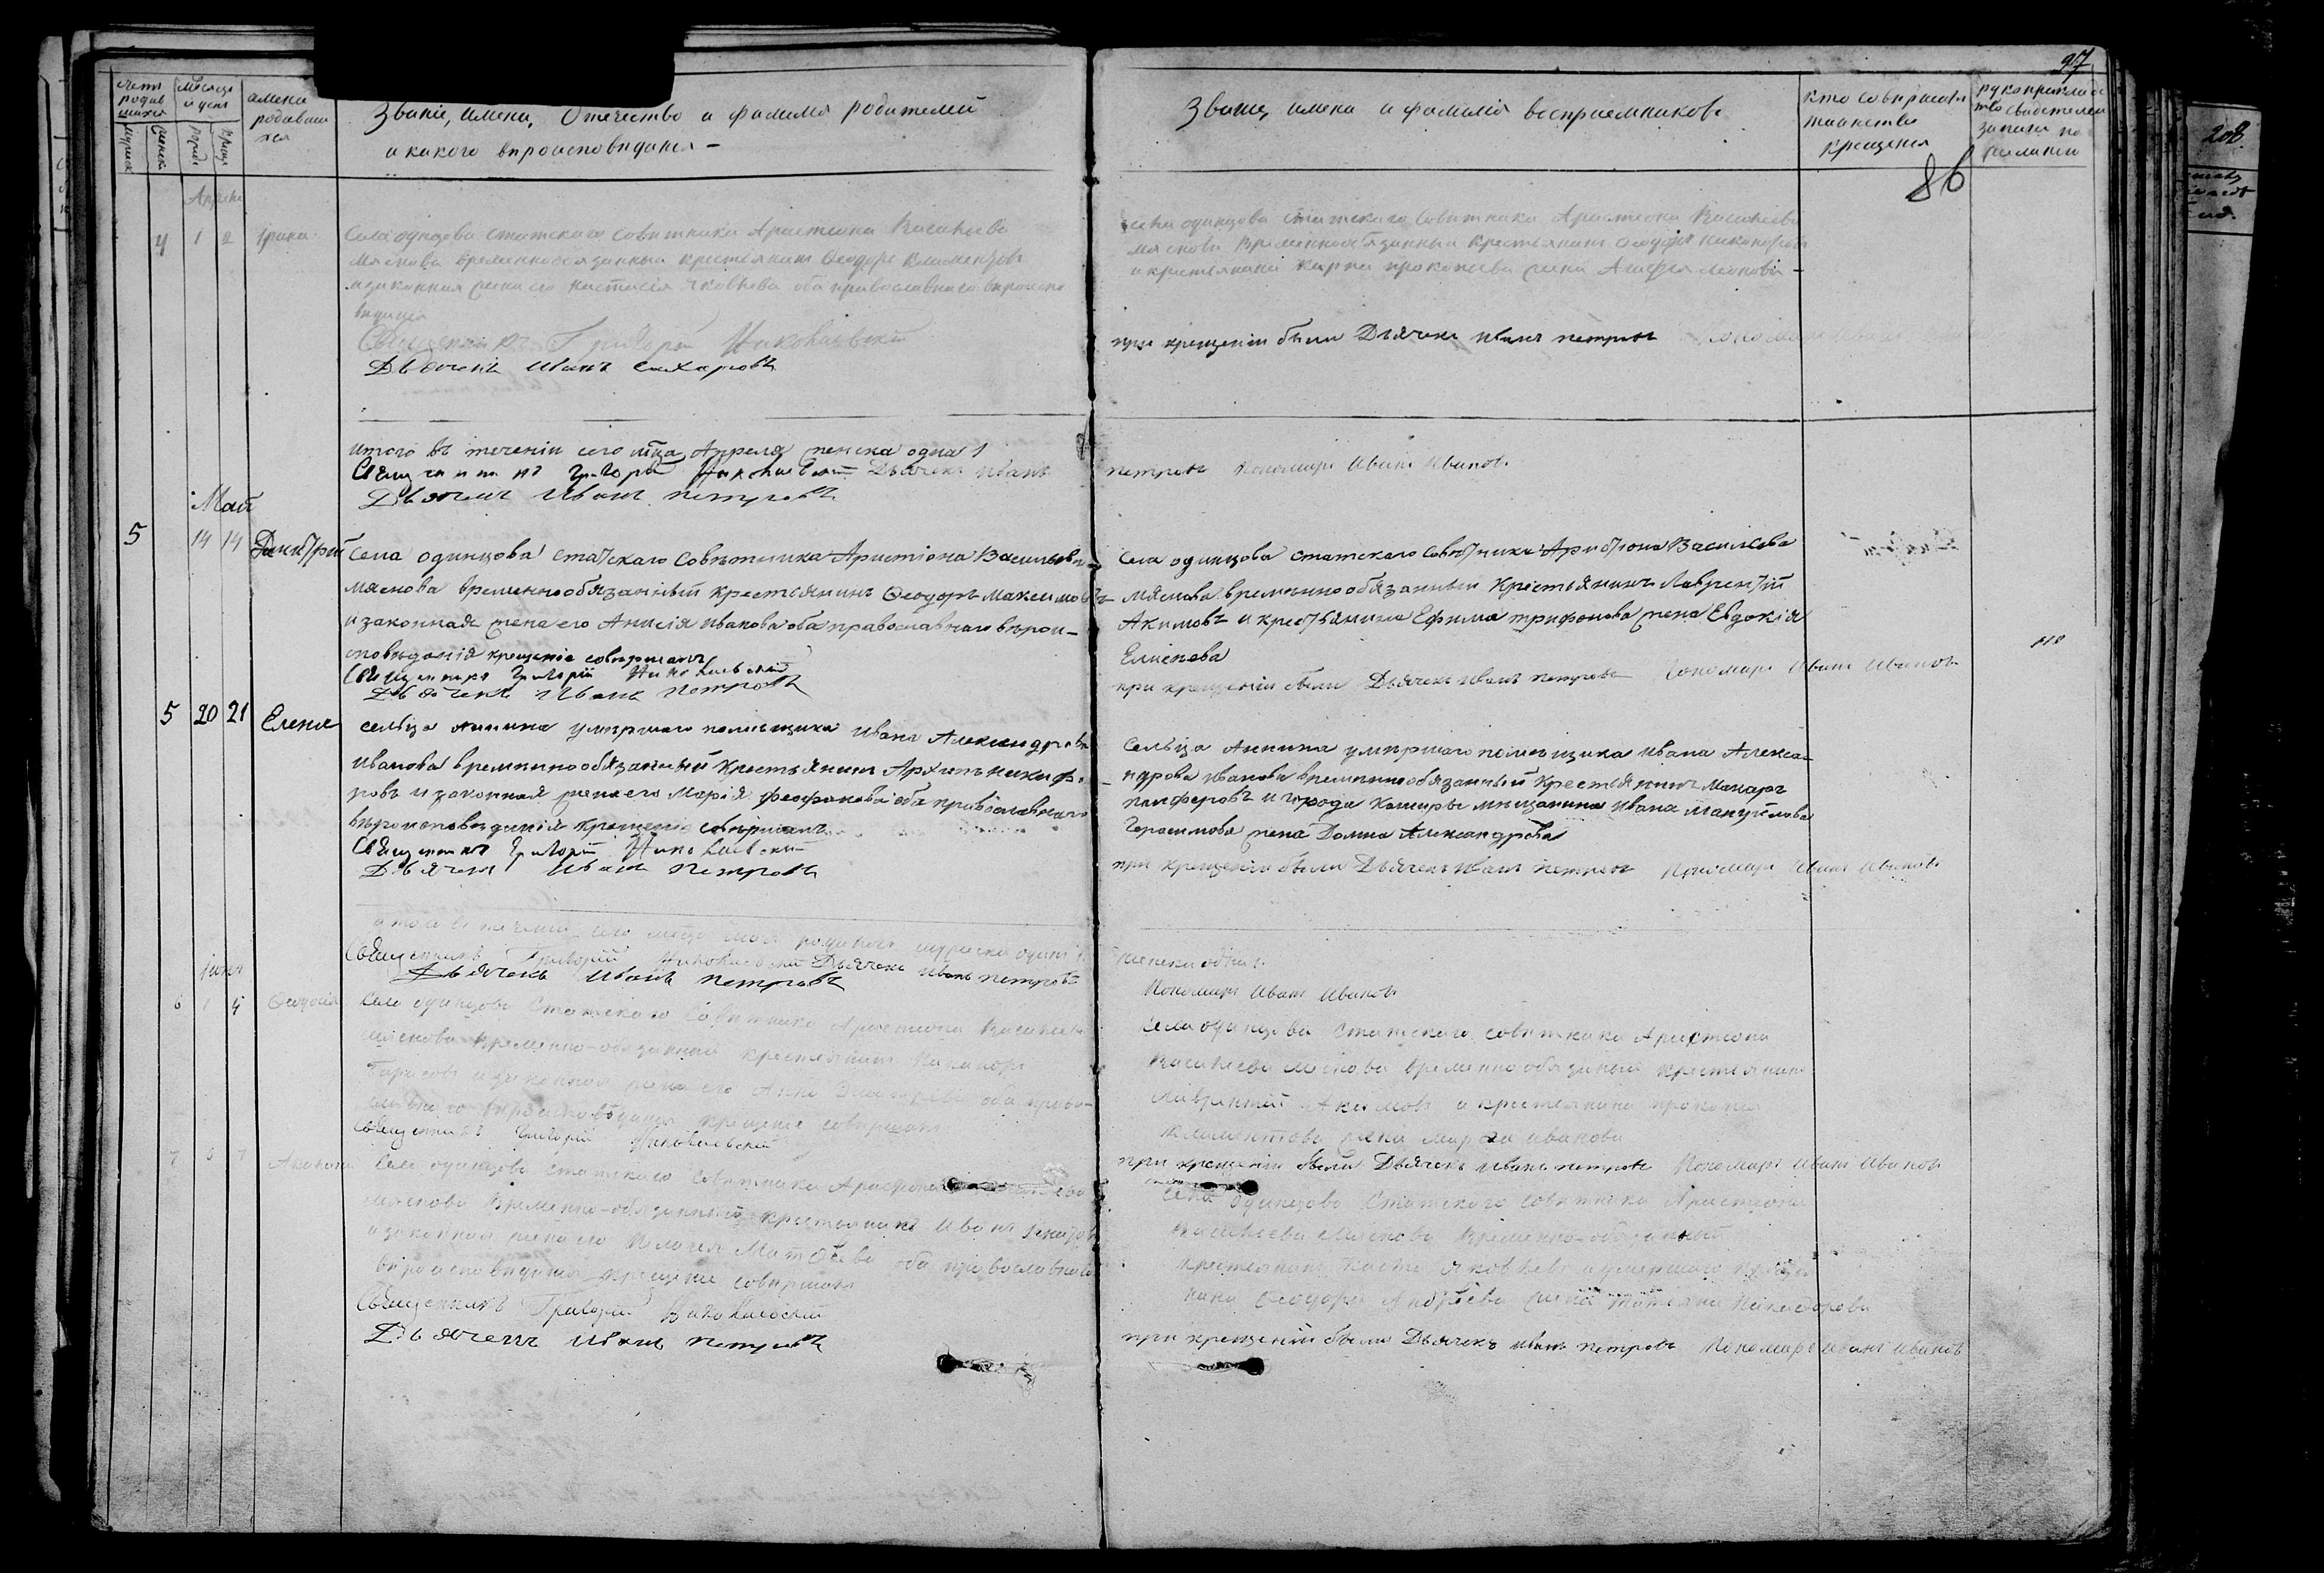 97
86
208
Счетъ родившихся
Мѣсяцъ и день
имена родившихся
Званіе, имена, Отчество и фамилія родителей
и какого вѣроисповѣданія –
Званіе, имена и фамилія воспріемниковъ
кто совершалъ таинство крещенія
Апрѣль
4 1 2
Села одинцова статскаго совѣтника Аристіона Васильева
мяснова временнообязанный крестьянинъ Ѳеодоръ Климентовъ
и законная жена его настасія Яковлева оба православнаго вѣроиспо
вѣданія
Священникъ Григорій Николаевскій
Дьячекъ Иванъ
села одинцова статскаго Совѣтника Аристіона Васильева
мяснова временнообязанный крестьянинъ Ѳеодоръ никоноровъ
и крестьянина Карпа прокопьева жена
при крещеніи были Дьячекъ иванъ петровъ
итого въ теченіи сего мѣца Апреля женска одна 1
Священникъ Григорій Николаевскій Дьячекъ иванъ
петровъ Пономарь Иванъ Ивановъ
Дьячекъ Иванъ петровъ
Май
5 14 14 Димитрій
Села одинцова статскаго Совѣтника Аристіона Васильева
мяснова временнообязанный крестьянинъ Ѳеодоръ максимовъ
и законная жена его Анисія иванова оба православнаго вѣрои–
сповѣданія крещеніе совершалъ
Священникъ Григорій Николаевскій
Дьячекъ Иванъ петровъ
Села одинцова статскаго совѣтника Аристіона Васильева
мяснова временнообязанный Крестьянинъ Лаврентій
Акимовъ и крестьянина Ефима трифонова жена Евдокія
при крещеніи были Дьячекъ иванъ петровъ Пономарь Иванъ Ивановъ
5 20 21 Елена
сельца аннина умершаго помѣщика ивана Александрова
иванова временнообязанный крестьянинъ Архипъ никифо
ровъ и законная жена его Марія феофанова оба православнаго
вѣроисповѣданія крещеніе совершалъ
Священникъ Григорій Николаевскій
Дьячекъ Иванъ петровъ
Сельца Аннина умершаго помѣщика ивана Алекса
ндрова иванова временнообязанный крестьянинъ макаръ
панферовъ и города Каширы мещанина ивана мануйлова
Герасимова жена Домна Александрова
при крещеніи были Дьячекъ иванъ петровъ Пономарь Иванъ Ивановъ
итого въ теченіи сего мѣца мая родилось мужеска одинъ 1
женска одна 1.
Священникъ Григорій Николаевскій Дьячекъ иванъ петровъ
Пономарь Иванъ Ивановъ
Дьячекъ Иванъ петровъ
Іюнь
6 1 4 Ѳеодосія
Села одинцова Статскаго Совѣтника Аристіона Васильева
мяснова временно-обязанный крестьянинъ Никаноръ
Тарасовъ и законная жена его Анна
вѣроисповѣданія крещеніе совершалъ
Священникъ Григорій Николаевскій
Села одинцова Статскаго совѣтника Аристіона
Васильева мяснова временно обязанный крестьянинъ
лаврентій Акимовъ и крестьянина прокопія
климентова жена иванова
при крещеніи были Дьячекъ иванъ петровъ Пономарь Иванъ Ивановъ
7
Села одинцова статскаго совѣтника
мяснова временно-обязанный крестьянинъ Иванъ
и законная жена его Пелагея Матвѣева оба православнаго
вѣроисповѣданія крещеніе совершалъ
Священникъ Григорій Николаевскій
Дьячекъ Иванъ петровъ
Села одинцова Статскаго совѣтника Аристіона
Васильева мяснова временно-обязанный
крестьянинъ Яковлевъ и умершаго
Ѳеодора жена Татьяна
при крещеніи были Дьячекъ иванъ петровъ Пономарь иванъ ивановъ